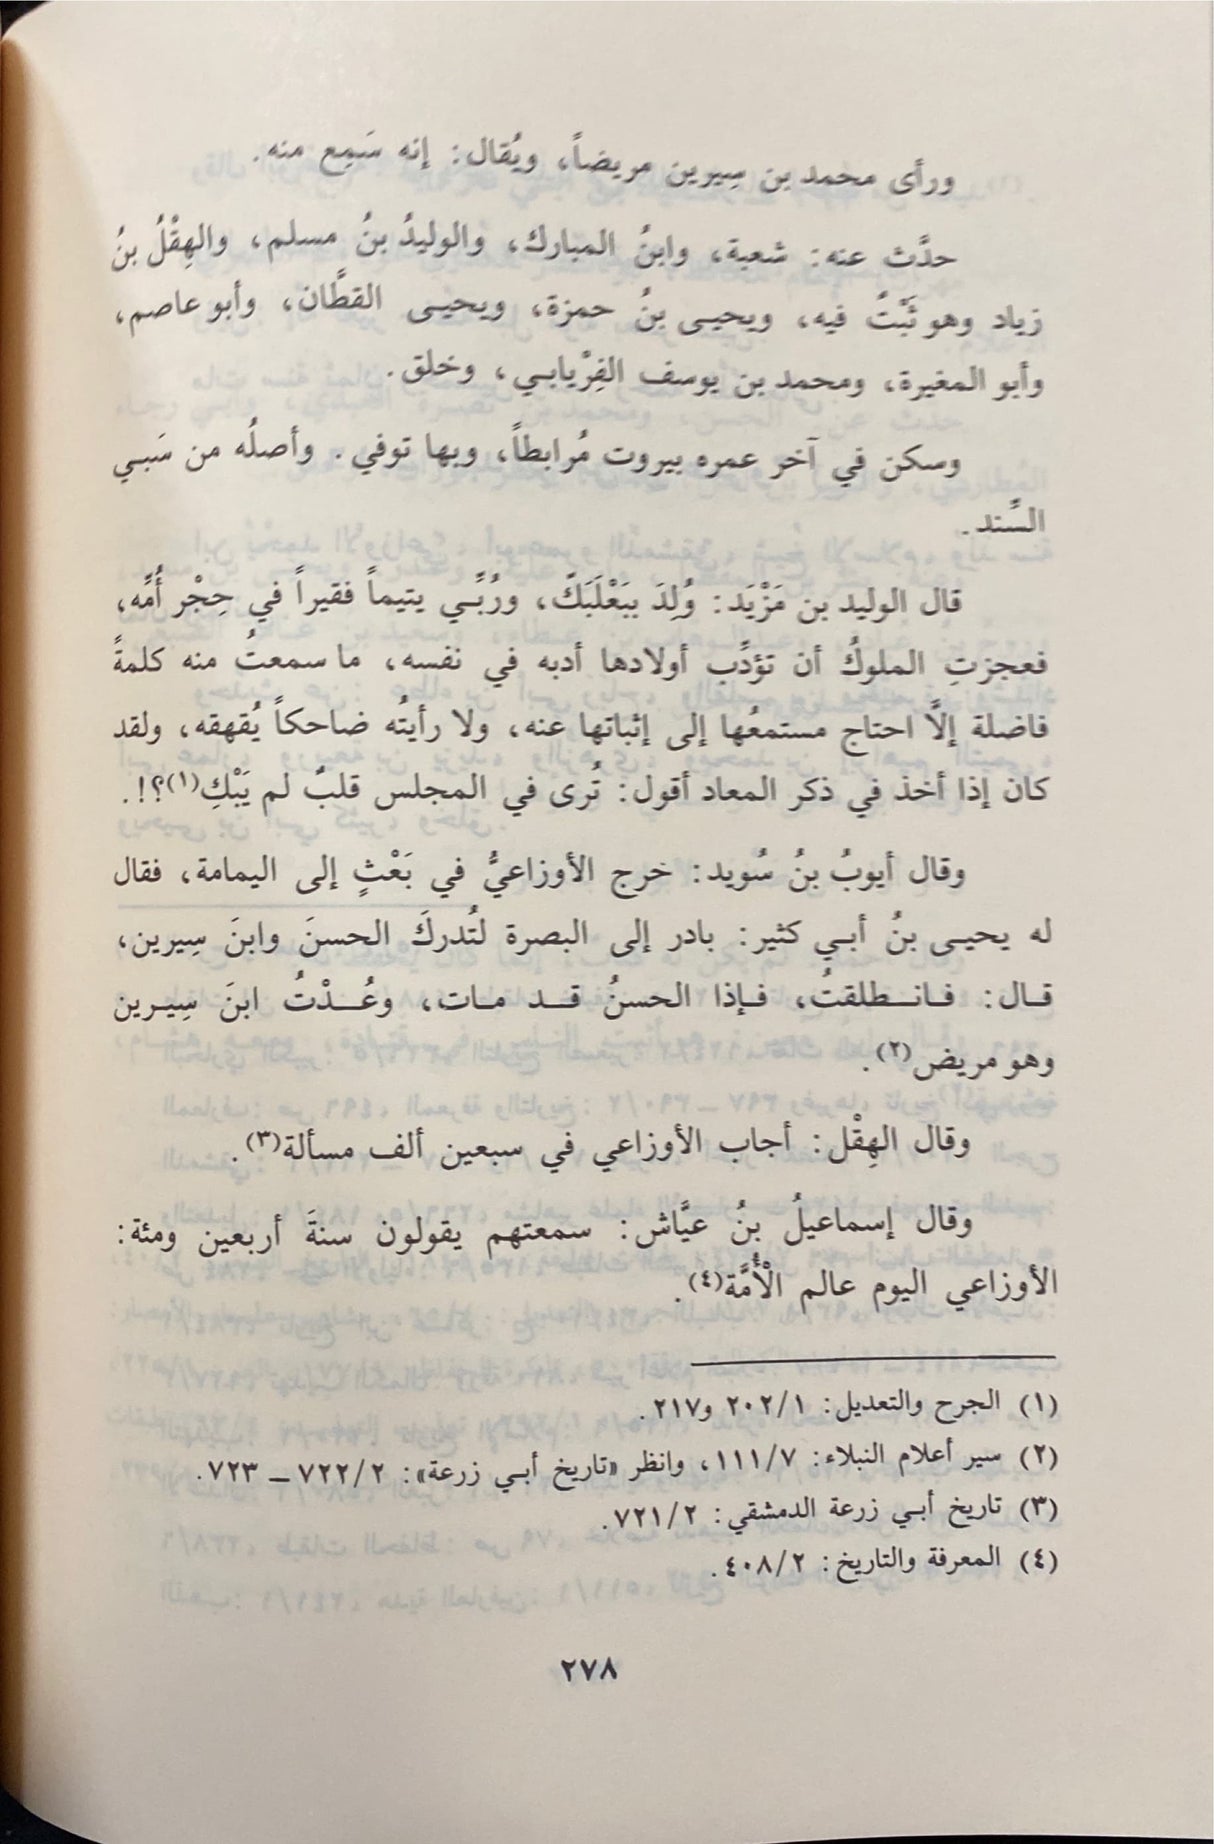 ورأى محمد بن سِيرين مريضاً، ويُقال: إنه سَمِع منه.
حدَّث عنه: شعبة، وابنُ المبارك، والوليدُ بنُ مسلم، والهِقْلُ بنُ
زياد وهو ثَبْتٌ فيه، ويحيـى بنُ حمزة، ويحيـى القطَّان، وأبو عاصم،
وأبو المغيرة، ومحمد بن يوسف الفِرْيابـي، وخلق.
وسكن في آخر عمره بيروت مُرابطاً، وبها توفي. وأصلُه من سَبـي
السِّند.
قال الوليد بن مَزْيَد: وُلِدَ ببَعْلَبَكَّ، ورُبِّـي يتيماً فقيراً في حِجْر أُمِّه،
فعجزتِ الملوكُ أن تؤدِّب أولادها أدبه في نفسه، ما سمعتُ منه كلمةً
فاضلة إلَّا احتاج مستمعُها إلى إثباتها عنه، ولا رأيتُه ضاحكاً يُقهقه، ولقد
كان إذا أخذ في ذكر المعاد أقول: تُرى في المجلس قلبٌ لم يَبْكِ(١)؟!.
وقال أيوبُ بنُ سُويد: خرج الأوزاعيُّ في بَعْثٍ إلى اليمامة، فقال
له يحيـى بنُ أبـي كثير: بادر إلى البصرة لتُدركَ الحسنَ وابنَ سِيرين،
قـال: فـانـطلقتُ، فـإذا الحسنُ قـد مـات، وعُـدْتُ ابنَ سِيـرين
وهو مريض(٢).
وقال الهِقْل: أجاب الأوزاعي في سبعين ألف مسألة(٣).
وقال إسماعيلُ بنُ عيَّاش: سمعتهم يقولون سنةَ أربعين ومئة:
الأوزاعي اليوم عالم الْأُمَّة(٤).
(١) الجرح والتعديل: ٢٠٢/١ و٢١٧.
(٢) سير أعلام النبلاء: ١١١/٧، وانظر «تاريخ أبـي زرعة»: ٧٢٢/٢ – ٧٢٣.
(٣) تاريخ أبـي زرعة الدمشقي: ٧٢١/٢.
(٤) المعرفة والتاريخ: ٤٠٨/٢.
٢٧٨